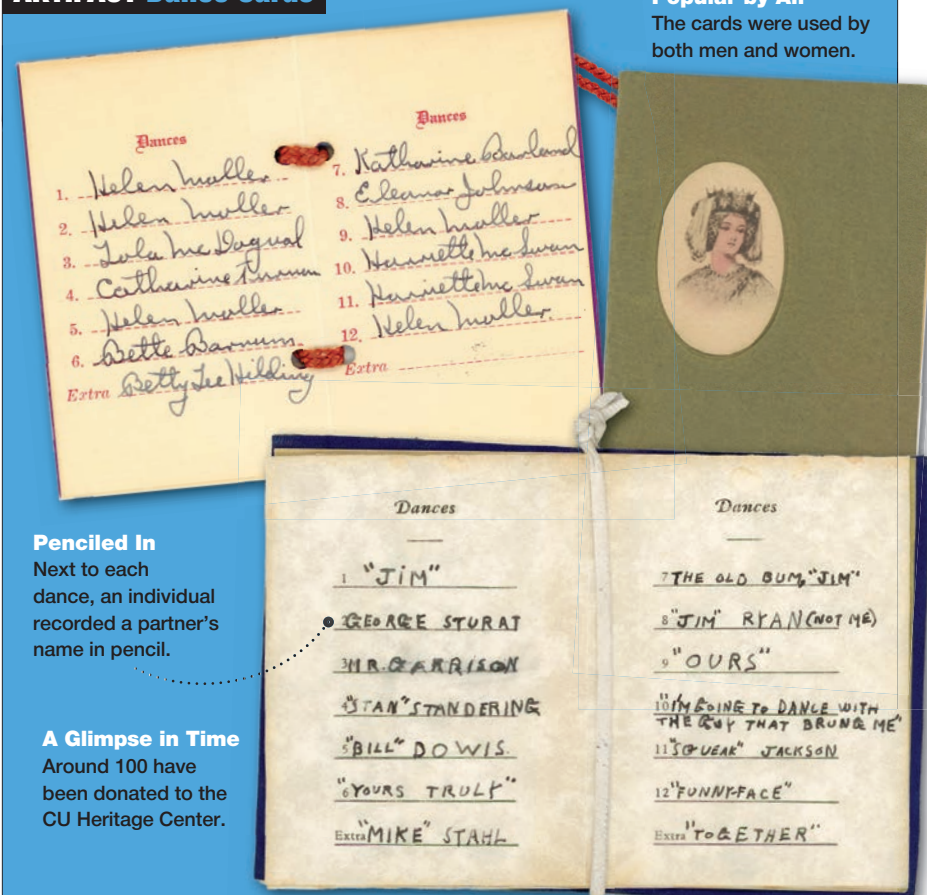 ARTIFACT Dance Cards
Popular by All
The cards were used by
both men and women.
Dances
1. Helen Moller
2. Helen Moller
3. Lola Mc
4. Catharine
5. Helen Moller
6. Bette Barnum
Extra Betty Lee Hilding
Dances
7. Katharine Borland
8. Eleanor Johnson
9. Helen Moller
10. Harriette Mc Swan
11. Harriette Mc Swan
12. Helen Moller.
Extra
Penciled In
Next to each
dance, an individual
recorded a partner's
name in pencil.
A Glimpse in Time
Around 100 have
been donated to the
CU Heritage Center.
Dances
1 "JIM"
2 GEORGE STURAT
3 MR. GARRISON
4 "STAN" STANDERING
5 "BILL" DOWIS.
6 "YOURS TRULY"
Extra "MIKE" STAHL
Dances
7 THE OLD BUM, "JIM"
8 "JIM" RYAN (NOT ME)
9 "OURS"
10 I'M GOING TO DANCE WITH
THE GUY THAT BRUNG ME"
11 "SQUEAK" JACKSON
12 "FUNNY-FACE"
Extra "TOGETHER"